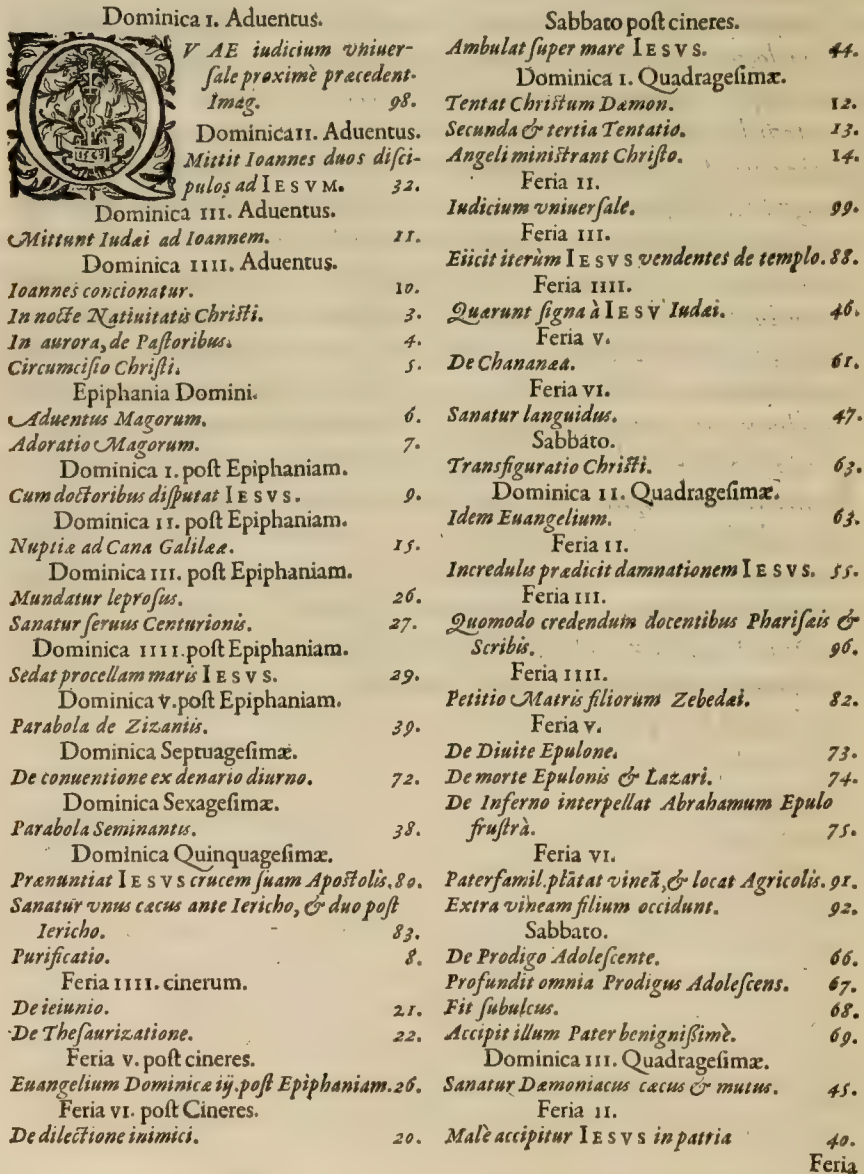 Dominica I. Aduentus.
QVAE iudicium vniuer-
ſale proximè præcedent.
Imag. 98.
Dominica II. Aduentus.
Mittit Ioannes duos diſci-
pulos ad IESVM. 32.
Dominica III. Aduentus.
Mittunt Iudæi ad Ioannem. 11.
Dominica IIII. Aduentus.
Ioannes concionatur. 10.
In nocte Natiuitatis Chriſti. 3.
In aurora, de Paſtoribus. 4.
Circumciſio Chriſti. 5.
Epiphania Domini.
Aduentus Magorum. 6.
Adoratio Magorum. 7.
Dominica I. poſt Epiphaniam.
Cum doctoribus diſputat IESVS. 9.
Dominica II. poſt Epiphaniam.
Nuptiæ ad Cana Galilææ. 15.
Dominica III. poſt Epiphaniam.
Mundatur leproſus. 26.
Sanatur ſeruus Centurionis. 27.
Dominica IIII. poſt Epiphaniam.
Sedat procellam maris IESVS. 29.
Dominica V. poſt Epiphaniam.
Parabola de Zizaniis. 39.
Dominica Septuageſimæ.
De conuentione ex denario diurno. 72.
Dominica Sexageſimæ.
Parabola Seminantis. 38.
Dominica Quinquageſimæ.
Prænuntiat IESVS crucem ſuam Apoſtolis. 80.
Sanatur vnus cæcus ante Iericho, & duo poſt
Iericho. 83.
Purificatio. 8.
Feria IIII. cinerum.
De ieiunio. 21.
De Theſaurizatione. 22.
Feria V. poſt cineres.
Euangelium Dominicæ iij. poſt Epiphaniam. 26.
Feria VI. poſt Cineres.
De dilectione inimici. 20.
Sabbato poſt cineres.
Ambulat ſuper mare IESVS. 44.
Dominica I. Quadrageſimæ.
Tentat Chriſtum Dæmon. 12.
Secunda & tertia Tentatio. 13.
Angeli miniſtrant Chriſto. 14.
Feria II.
Iudicium vniuerſale. 99.
Feria III.
Eiicit iterùm IESVS vendentes de templo. 88.
Feria IIII.
Quærunt ſigna à IESV Iudæi. 46.
Feria V.
De Chananæa. 61.
Feria VI.
Sanatur languidus. 47.
Sabbato.
Transfiguratio Chriſti. 63.
Dominica II. Quadrageſimæ.
Idem Euangelium. 63.
Feria II.
Incredulis prædicit damnationem IESVS. 55.
Feria III.
Quomodo credendum docentibus Phariſæis &
Scribis. 96.
Feria IIII.
Petitio Matris filiorum Zebedæi. 82.
Feria V.
De Diuite Epulone. 73.
De morte Epulonis & Lazari. 74.
De Inferno interpellat Abrahamum Epulo
fruſtrà. 75.
Feria VI.
Paterfamil. plātat vineā, & locat Agricolis. 91.
Extra vineam filium occidunt. 92.
Sabbato.
De Prodigo Adoleſcente. 66.
Profundit omnia Prodigus Adoleſcens. 67.
Fit ſubulcus. 68.
Accipit illum Pater benigniſſimè. 69.
Dominica III. Quadrageſimæ.
Sanatur Dæmoniacus cæcus & mutus. 45.
Feria II.
Malè accipitur IESVS in patria 40.
Feria